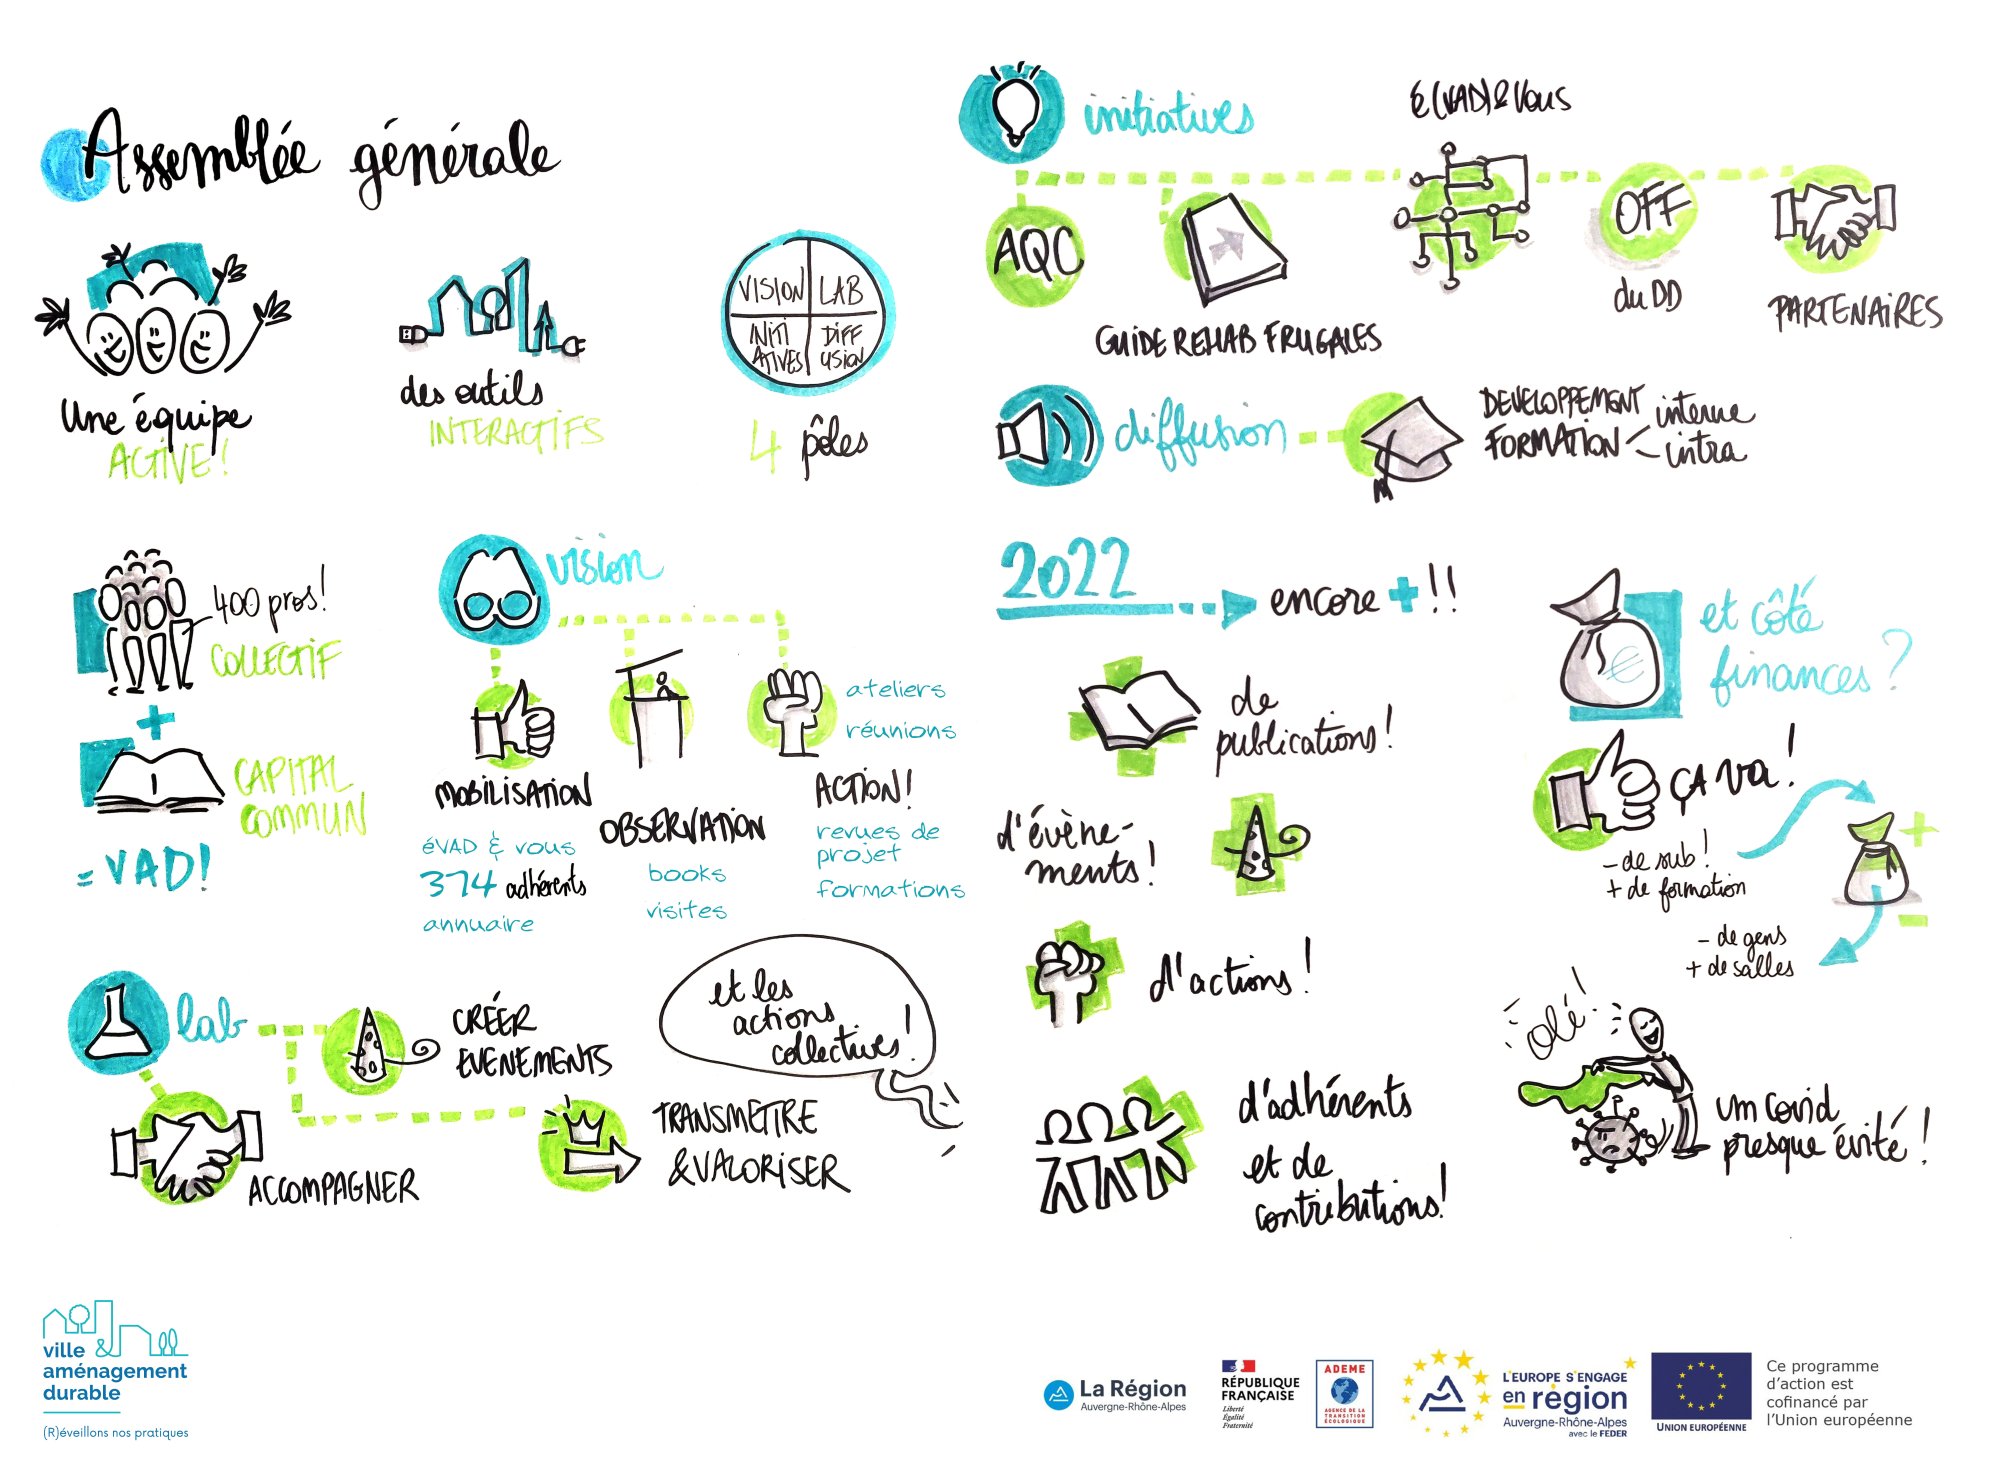 Assemblée générale
Une équipe
ACTIVE !
des outils
INTERACTIFS
VISION
LAB
INITI
ATIVES
DIFF
USION
4 pôles
400 pros !
COLLECTIF
+
CAPITAL
COMMUN
= VAD !
vision
MOBILISATION
éVAD & vous
374 adhérents
annuaire
OBSERVATION
books
visites
ateliers
réunions
ACTION !
revues de
projet
formations
lab
CRÉER
EVENEMENTS
ACCOMPAGNER
TRANSMETTRE
& VALORISER
et les
actions
collectives !
initiatives
AQC
GUIDE REHAB FRUGALES
é(VAD) & Vous
OFF
du DD
PARTENAIRES
diffusion
DEVELOPPEMENT
FORMATION
interne
intra
2022
encore + !!
de
publications !
d'évène-
ments !
d'actions !
d'adhérents
et de
contributions !
€
et côté
finances ?
ÇA VA !
- de sub !
+ de formation
+
-
- de gens
+ de salles
olé !
un covid
presque évité !
ville
aménagement
durable
(R)éveillons nos pratiques
La Région
Auvergne-Rhône-Alpes
RÉPUBLIQUE
FRANÇAISE
Liberté
Égalité
Fraternité
ADEME
AGENCE DE LA
TRANSITION
ÉCOLOGIQUE
L'EUROPE S'ENGAGE
en région
Auvergne-Rhône-Alpes
avec le FEDER
UNION EUROPÉENNE
Ce programme
d'action est
cofinancé par
l'Union européenne